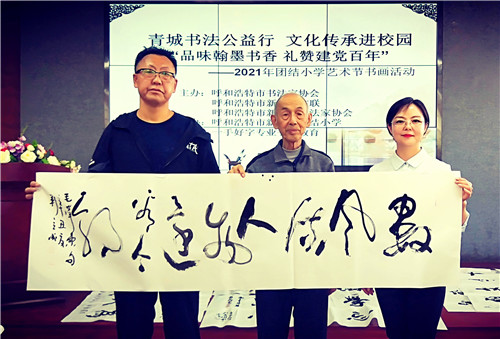 青城书法公益行 文化传承进校园
“品味翰墨书香 礼赞建党百年”
——2021年团结小学艺术节书画活动
主办：呼和浩特市书法家协会
呼和浩特市新 联
呼和浩特市新 法家协会
呼和浩特市新 结小学
于好字专业 教育
数风流人物还看今朝